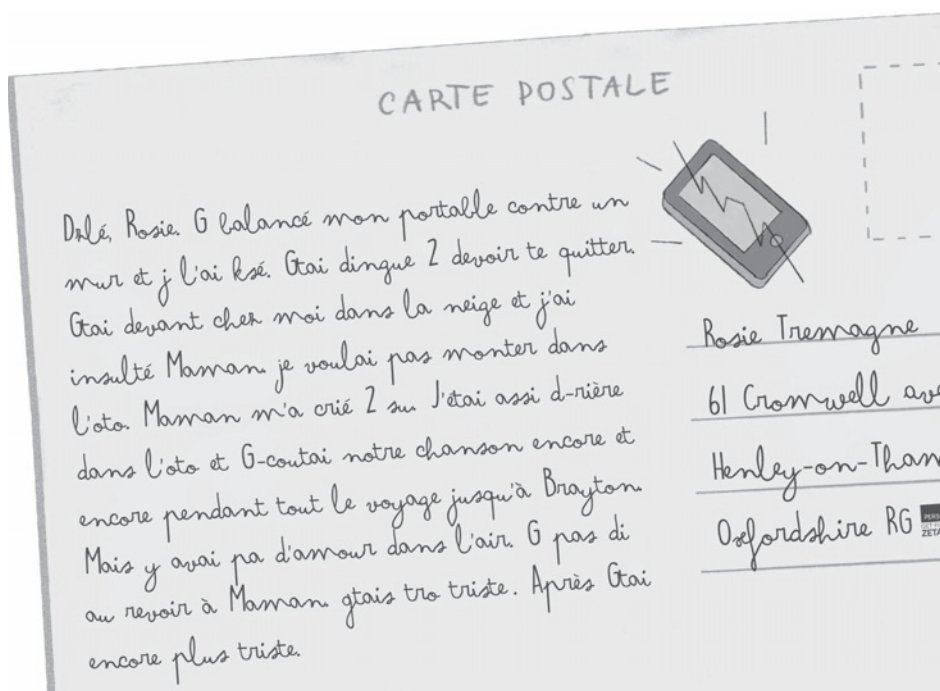 CARTE POSTALE
Dzlé, Rosie. G balancé mon portable contre un
mur et j l'ai ksé. Gtai dingue 2 devoir te quitter.
Gtai devant chez moi dans la neige et j'ai
insulté Maman. je voulai pas monter dans
l'oto. Maman m'a crié 2 su. J'étai assi d-rière
dans l'oto et G-coutai notre chanson encore et
encore pendant tout le voyage jusqu'à Brayton.
Mais y avai pa d'amour dans l'air. G pas di
au revoir à Maman. gtais tro triste. Après Gtai
encore plus triste.
Rosie Tremagne
61 Cromwell ave
Henley-on-Tham
Oxfordshire RG